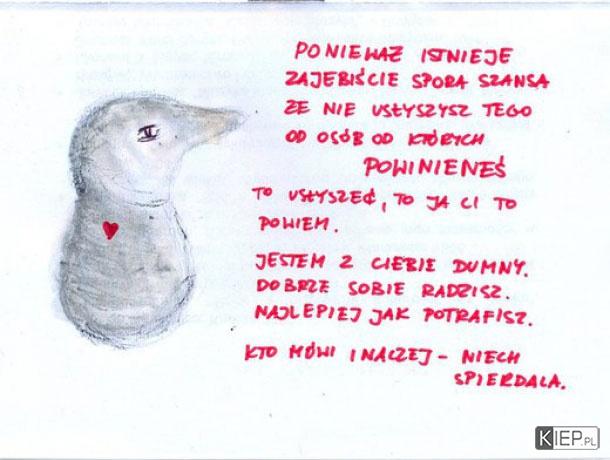 PONIEWAŻ ISTNIEJE
ZAJEBIŚCIE SPORA SZANSA
ŻE NIE USŁYSZYSZ TEGO
OD OSÓB OD KTÓRYCH
POWINIENEŚ
TO USŁYSZEĆ, TO JA CI TO
POWIEM.
JESTEM Z CIEBIE DUMNY.
DOBRZE SOBIE RADZISZ.
NAJLEPIEJ JAK POTRAFISZ.
KTO MÓWI INACZEJ - NIECH
SPIERDALA.
KIEP.PL